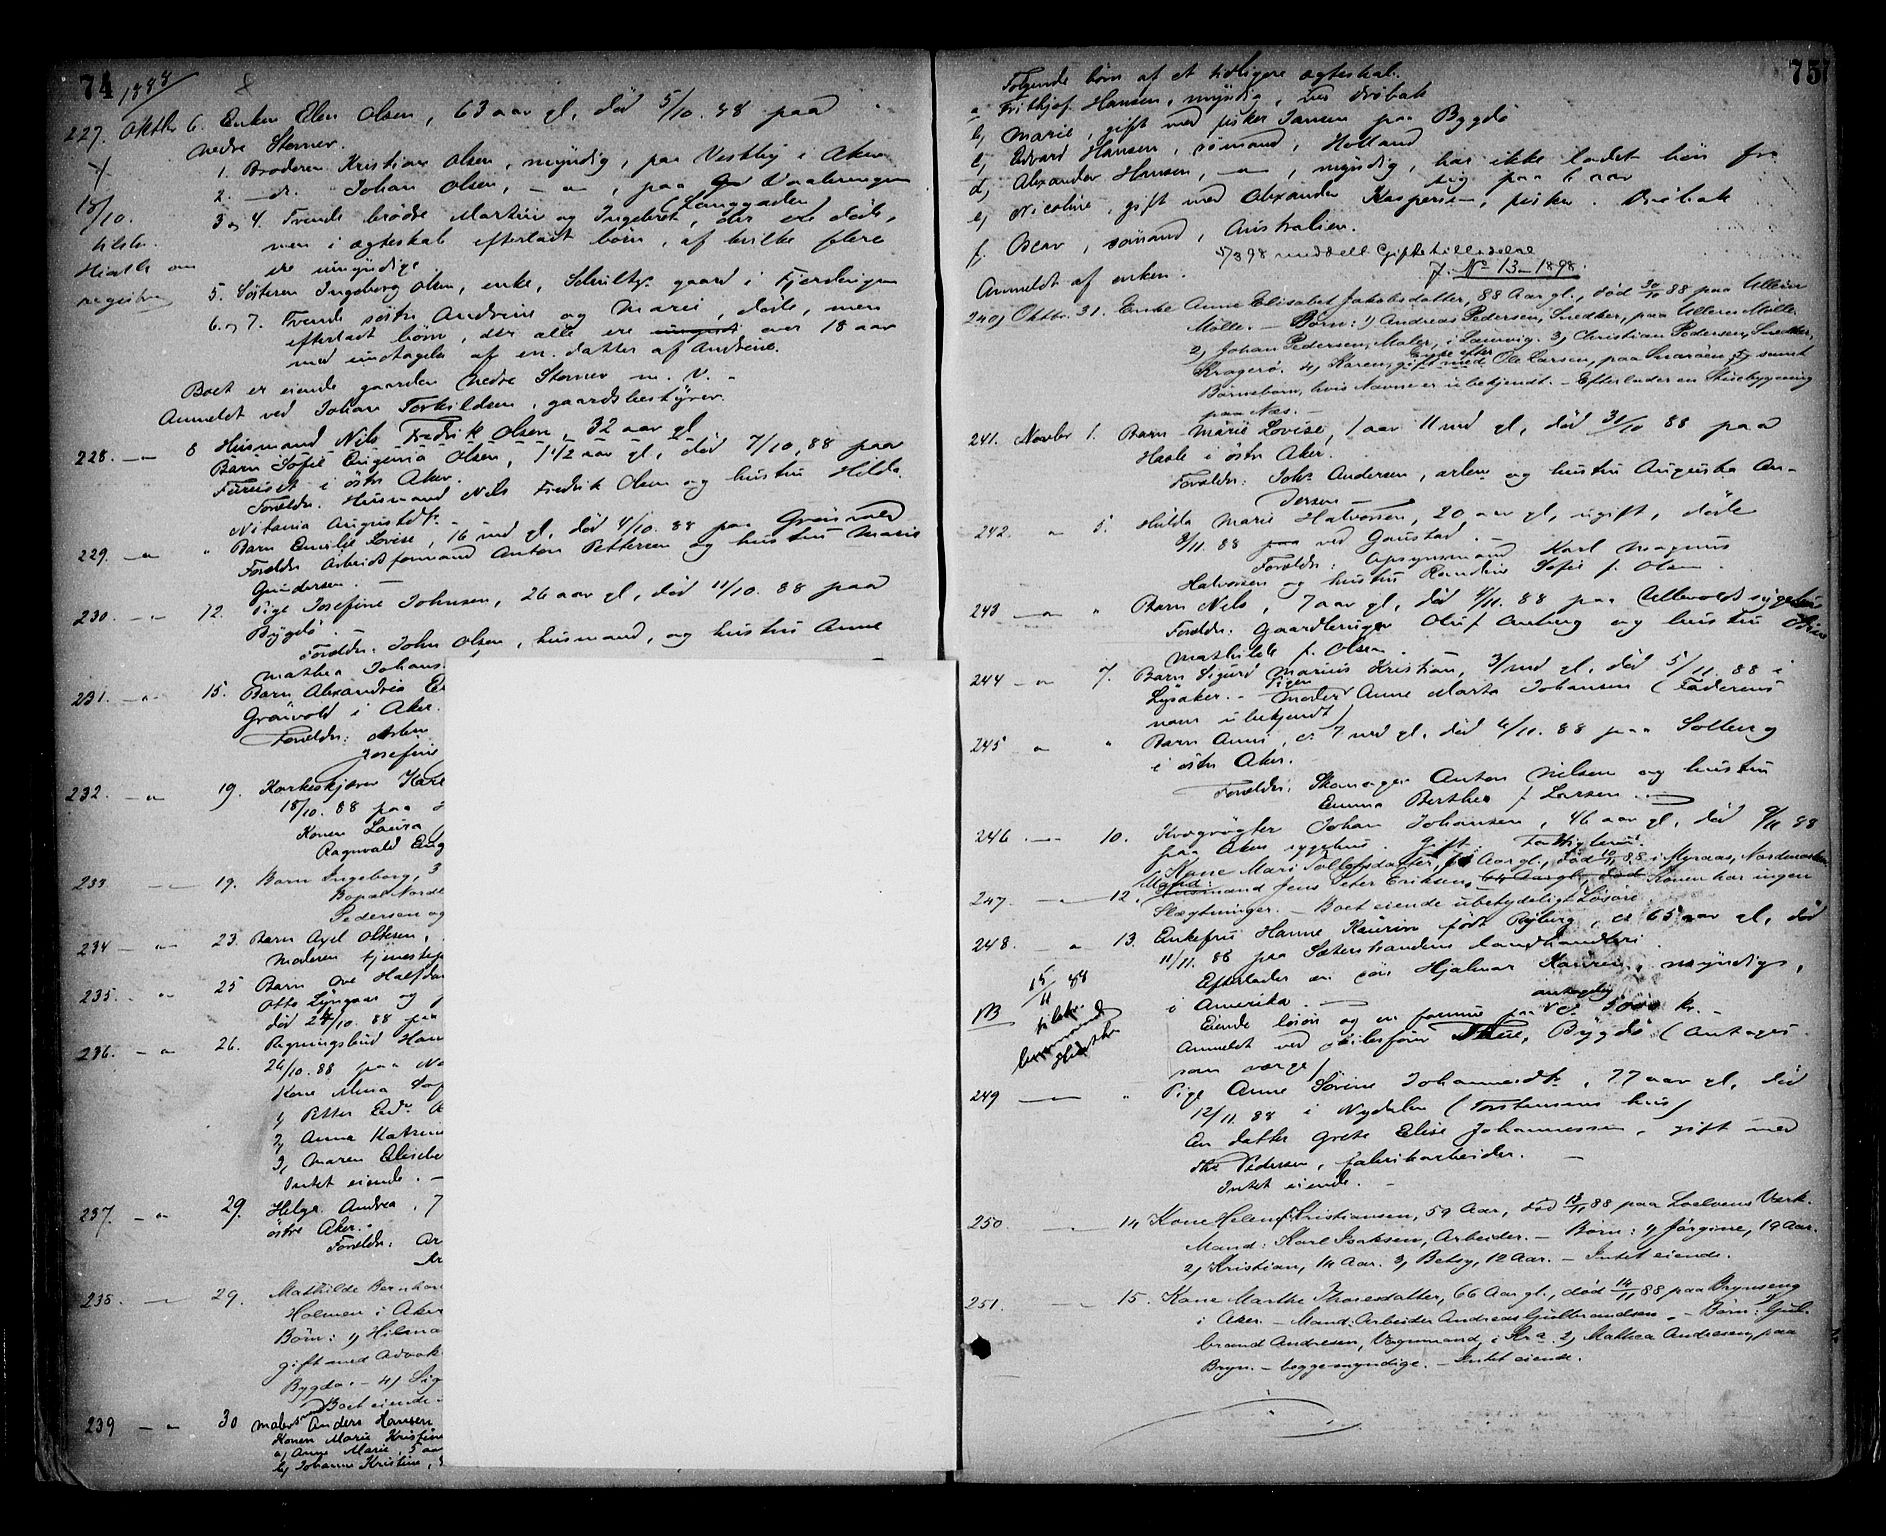 74
1888
227. Oktbr 6. Enken Elen Olsen, 63 aar gl, död 5/10. 88 paa
nedre Stovner.
1. Broderen Kristian Olsen, myndig, paa Vestby i Aker
2. – dr. Johan Olsen, – " – , paa Vaalerengen
(Langgaden)
3 og 4. Trende brödre Martin og Ingebret, der ere döde,
men i ægteskab efterladt börn, af hvilke flere
ere umyndige
15/10.
tilskr.
5. Söstren Ingeborg Olsen, enke, Schultz gaard i Fjerdingen
6. og 7. Trende söstre Andrine og Marie, döde, men
efterladt börn, der alle ere over 18 aar
med undtagelse af en datter af Andrine.
Boet er eiende gaarden nedre Stovner m. v. –
Anmeldt ved Johan Torkildsen, gaardsbestyrer.
228. – " 8 Husmand Nils Fredrik Olsen, 32 aar gl
Barn Sofie Eugenia Olsen, 1 1/2 aar gl, död 7/10. 88 paa
Furuset i östre Aker.
Foreldr. Husmand Nils Fredrik Olsen og hustru Hilda
Nitania Augustdtr. –
229. – " " Barn Emilie Lovise, 16 md gl, död 4/10. 88 paa Grönvold
Foreldr. Arbeidsformand Anton Pettersen og hustru Marie
Gundersen. –
230. – " 12. Pige Josefine Johnsen, 26 aar gl, död 11/10. 88 paa
Bygdö. –
Foreldr. John Olsen, husmand, og hustru Anne
Mathea Johans
231. – " 15. Barn Alexandra
Grönvold i Aker.
Foreldr: Arbm
Josefine
232. – " 19. Korkeskjærer Karl
18/10. 88 paa
Konen Laura
Ragnvald
233 – 19. Barn Ingeborg, 3
Bopæl Nordr
Pedersen og
234 – " 23. Barn Axel Olsen,
Moderen tjenestepi
235. – " 25 Barn Ove Halfdan
Otto Lyngaas og
död 24/10. 88 paa
236. – " 26. Regningsbud Han
26/10. 88 paa No
Kone Mina
1, Petter Edv.
2, Anna Katrine
3, Maren Elisebe
Intet eiende. –
237. – " 29. Helga Andrea, 7
östre Aker. –
Foreldr: Ar
238. – 29. Mathilde Bernhar
Holmen i Aker
Børn: 1) Hilma
gift med Advok
Bygdø. – 4) Sig
Boet eiende
239 – " 30 Anders Hansen
Konen Marie Kristine
a, Anne Marie, 5 aar
b, Johanne Kristine,
75
Følgende börn af et tidligere ægteskab.
a, Frithjof Hansen, myndig, ved Dröbak
b, Marie, gift med fisker Jansen paa Bygdö
c, Edvard Hansen, sömand, Holland
d, Alexander Hansen, – " – , myndig, har ikke ladet höre fra
sig paa 6 aar
e, Nicoline, gift med Alexander Kaspersen, fisker. Dröbak
f. Oscar, sömand, Australien.
5/3 98 meddelt Giftetilladelse
J. No 13 – 1898.
Anmeldt af enken.
240, Oktbr. 31. Enke Anne Elisabet Jakobsdatter, 88 Aar gl., død 30/10 88 paa Ullern
Mølle. – Børn: 1) Andreas Pedersen, Snedker, paa Ullern Mølle
2, Johan Pedersen, Maler, i Laurvig. 3, Christian Pedersen, Snedker,
Kragerø. 4, Karen, Enke efter Ole Larsen, paa Snarøen, samt
Børnebørn, hvis Navne er ubekjendt. – Efterlader en Stuebygning
paa Næs. –
241. Novbr 1. Barn Marie Lovise, 1 aar 11 md gl, död 31/10 88 paa
Hasle i östre Aker.
Foreldr: Johs Andersen, arbm og hustru Augusta An-
dersen –
242. – " 5. Hulda Marie Halvorsen, 20 aar gl, ugift, döde
3/11. 88 paa ved Gaustad. –
Foreldr: Opsynsmand Karl Magnus
Halvorsen og hustru Randine Sofie f. Olsen.
243 – " " Barn Nils, 7 aar gl, död 4/11. 88 paa Ullevolds sygehus
Foreldr. gaardbruger Oluf Amling og hustru
Mathilde f. Olsen.
244 – " 7. Barn Sigurd Marius Kristian, 3/ md gl, död 5/11. 88 i
Lysaker. – Moder Pigen Anne Marta Johansen (Faderens
navn ubekjendt)
245 " " Barn Anni, c. 7 md gl, död 4/11. 88 paa Solberg
i östre Aker.
Foreldr: Skomager Anton Nilsen og hustru
Emma Berthea f. Larsen. –
246 – 10. Kvægrögter Johan Johansen, 46 aar gl, död 9/11 88
paa Akers sygehus. Gift. Fattiglem.
Kone Mari Tollefsdatter, Aar gl., död 10/11 88 i Myraas, Nordmarken
247. – " 12. Mand: Husmand Jens Peter Eriksen, 64 Aar gl., död Konen har ingen
Slægtninger. – Boet eiende ubetydeligt Løsøre.
248. – " 13. Enkefru Hanne Kaurin född Ryberg, c. 65 aar gl, död
11/11. 88 paa Sæterstrandens landhandleri.
15/11 88
Efterlader en sön Hjalmar Kaurin, myndig,
NB
i Amerika. –
Eiende lösöre og en formue paa antagelig 5000 kr. –
Anmeldt ved skibsförer Thue, Bygdö (Antages
som værge)
249 – " Pige Anne Sörine Johannesdtr, 77 aar gl, död
12/11. 88 i Nydalen (Torstensens hus)
En datter Grete Elise Johannessen, gift med
Ths Pedersen, fabrikarbeider. –
Intet eiende. –
250. – 14 Kone Helene Kristiansen, 59 Aar, død 13/11 88 paa Loelvens Værk.
Mand: Karl Isaksen, Arbeider. – Børn: 1, Jørgine, 19 Aar.
2, Kristian, 14 Aar. 3, Betsy, 12 Aar. – Intet eiende.
251. – 15. Kone Marthe Thoresdatter, 66 Aar gl., død 14/11 88 paa Brynseng
i Aker. – Mand: Arbeider Andreas Gulbrandsen. – Børn: 1, Gul-
brand Andresen, Vognmand, i Kra. 2, Mathea Andresen, paa
Bryn. – begge myndige. – Intet eiende.